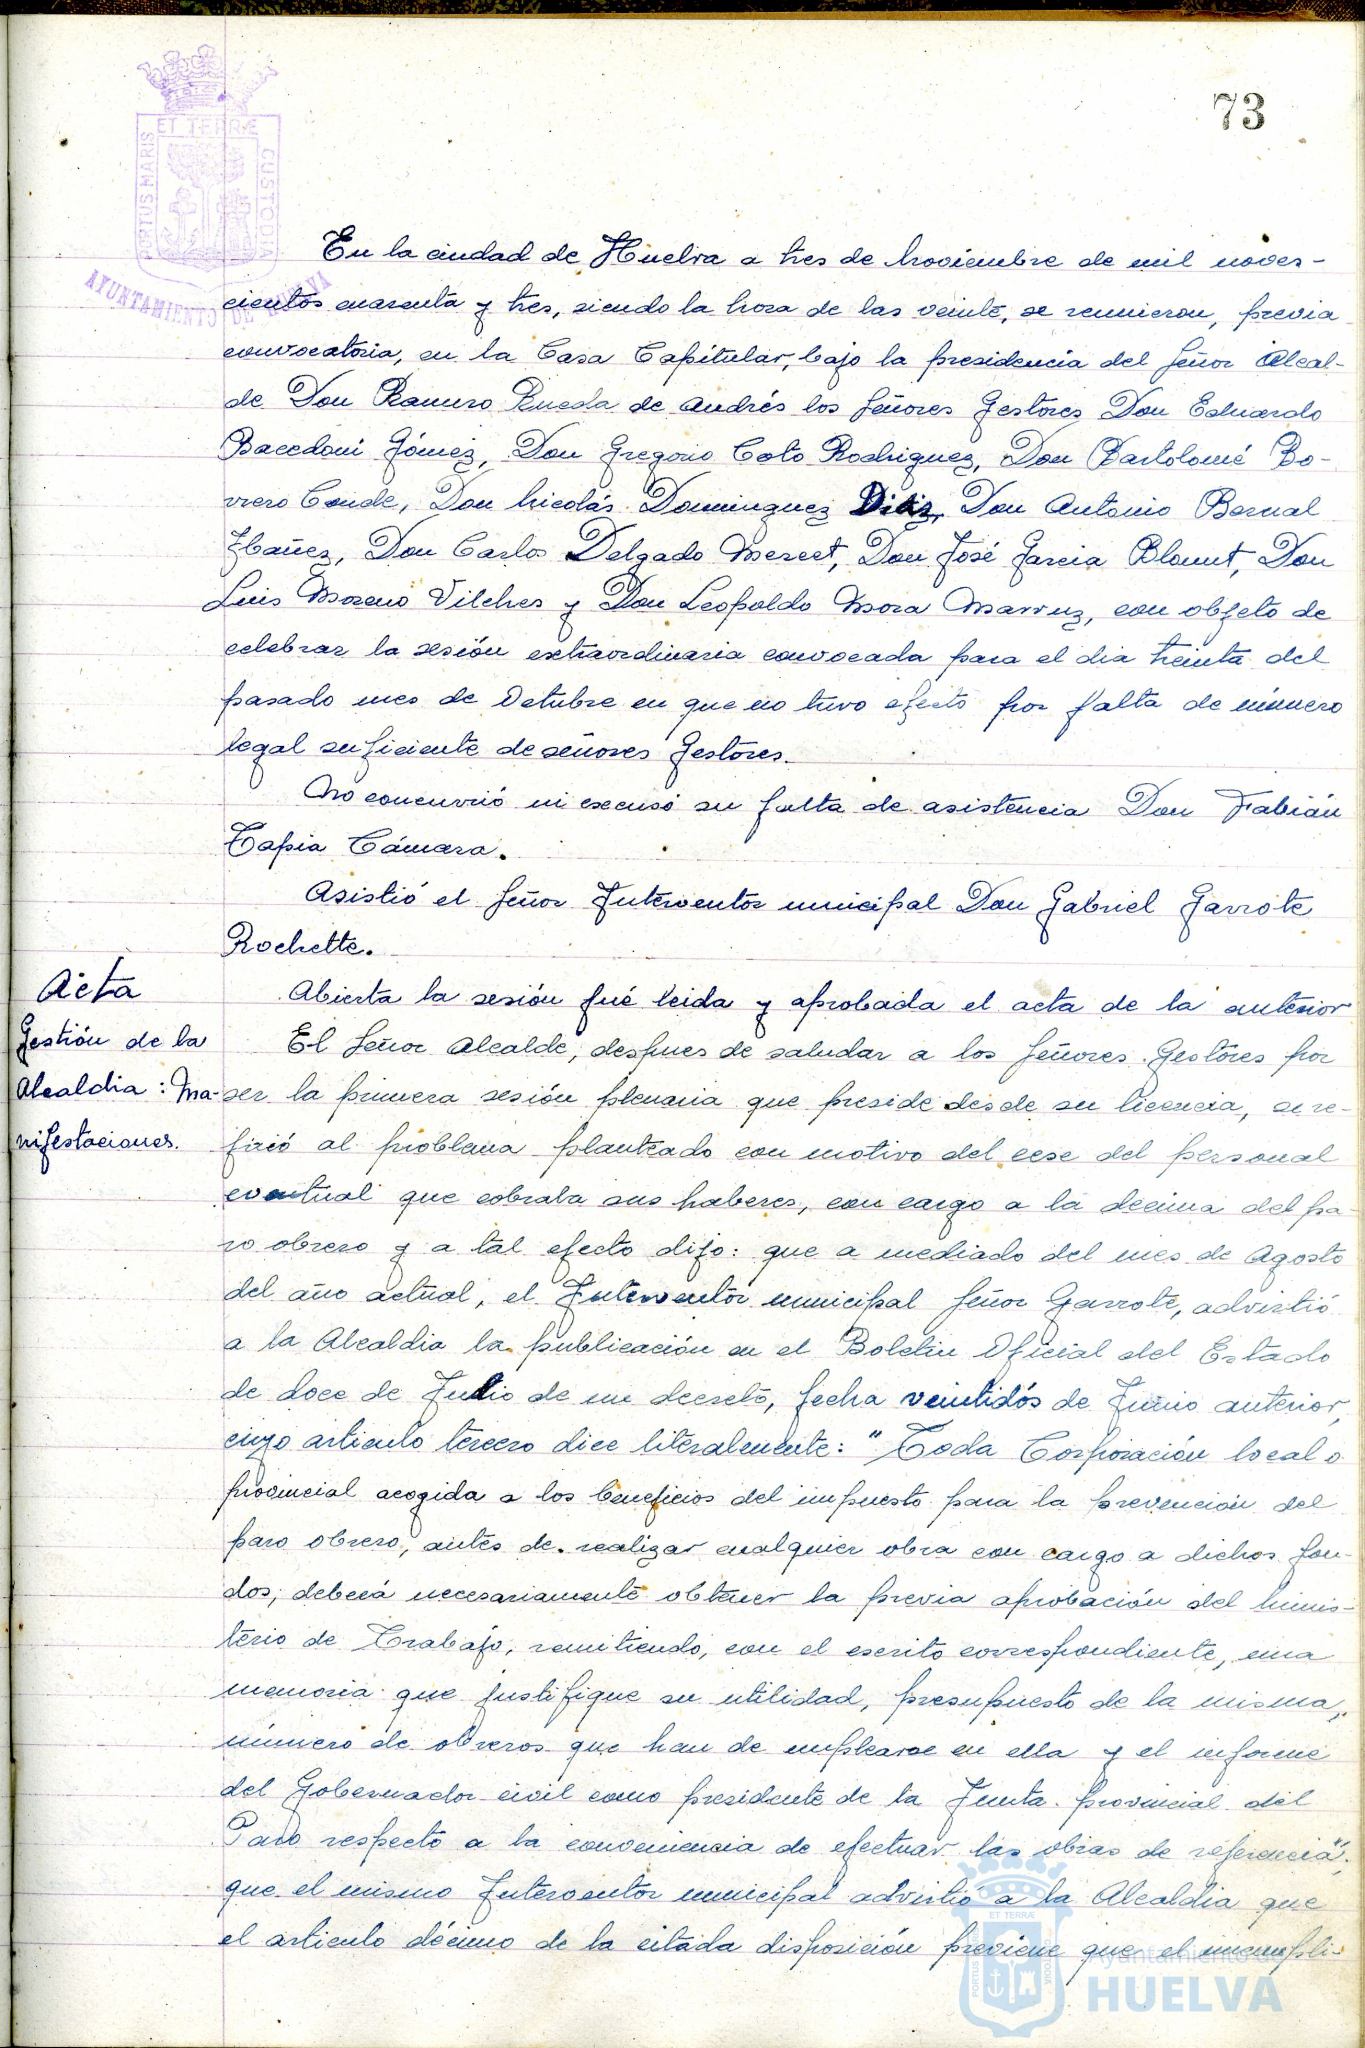 73
ET TERRÆ
PORTUS MARIS
CUSTODIA
AYUNTAMIENTO DE HUELVA
En la ciudad de Huelva a tres de Noviembre de mil noves-
cientos cuarenta y tres, siendo la hora de las veinte, se reunieron, previa
convocatoria, en la Casa Capitular, bajo la presidencia del Señor Alcal-
de Don Ramiro Rueda de Andrés los Señores Gestores Don Eduardo
Bacedoni Gómez, Don Gregorio Coto Rodriguez, Don Bartolomé Bo-
rrero Conde, Don Nicolás Dominguez Diaz, Don Antonio Bernal
Ibañez, Don Carlos Delgado Mercet, Don José Garcia Blount, Don
Luis Moreno Vilches y Don Leopoldo Mora Marruz, con objeto de
celebrar la sesión extraordinaria convocada para el dia treinta del
pasado mes de Octubre en que no tuvo efecto por falta de número
legal suficiente de señores Gestores.
No concurrió ni excusó su falta de asistencia Don Fabián
Tapia Cámara.
Asistió el Señor Interventor municipal Don Gabriel Garrote
Rochette.
Acta
Abierta la sesión fué leida y aprobada el acta de la anterior
Gestión de la
Alcaldia: Ma-
nifestaciones.
El Señor Alcalde, despues de saludar a los Señores Gestores por
ser la primera sesión plenaria que preside desde su licencia, se re-
firió al problema planteado con motivo del cese del personal
eventual que cobraba sus haberes, con cargo a la decima del pa-
ro obrero y a tal efecto dijo: que a mediado del mes de Agosto
del año actual, el Interventor municipal Señor Garrote, advirtió
a la Alcaldia la publicación en el Boletin Oficial del Estado
de doce de Julio de un decreto, fecha veintidós de Junio anterior,
cuyo articulo tercero dice literalmente: "Toda Corporación local o
provincial acogida a los beneficios del impuesto para la prevención del
paro obrero, antes de realizar cualquier obra con cargo a dichos fon-
dos, deberá necesariamente obtener la previa aprobación del Minis-
terio de Trabajo, remitiendo, con el escrito correspondiente, una
memoria que justifique su utilidad, presupuesto de la misma,
número de obreros que han de emplearse en ella y el informe
del Gobernador civil como presidente de la Junta provincial del
Paro respecto a la conveniencia de efectuar las obras de referencia";
que el mismo Interventor municipal advirtió a la Alcaldia que
el articulo décimo de la citada disposición previene que el incumpli-
ET TERRÆ
PORTUS
CUSTODIA
Ayuntamiento de
HUELVA